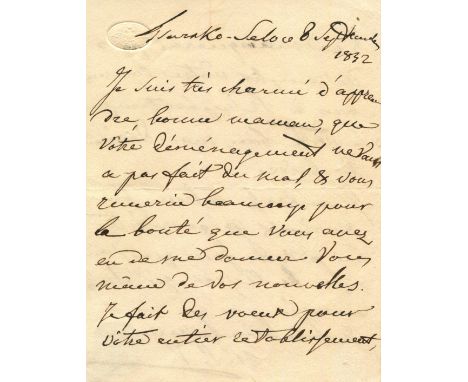 Tsarsko-Selo ce 8 Septembre
1832
Je suis très charmé d'appren
dre bonne maman, que
vôtre déménagement ne Vous
a pas fait du mal, & vous
remercie beaucoup pour
la bonté que Vous avez
eu de me donner Vous
même de vos nouvelles.
Je fait des voeux pour
vôtre entier retablissement,